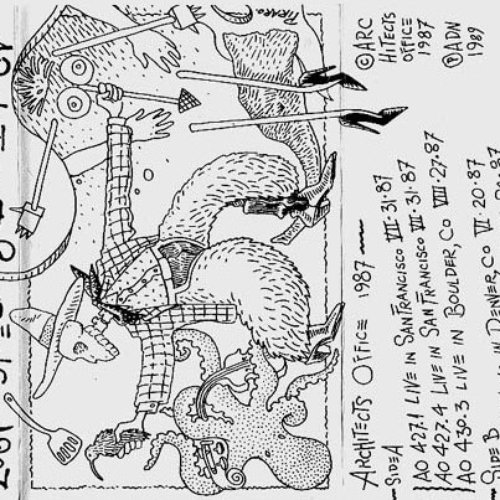 ARCHITECTS OFFICE 1987
©ARC
HITECTS
OFFICE
1987
℗ADN
1989
SIDE A
AO 427.1 LIVE IN SAN FRANCISCO VII·31·87
AO 427.4 LIVE IN SAN FRANCISCO VII·31·87
AO 430.3 LIVE IN BOULDER, CO VIII·27·87
SIDE B
IN DENVER, CO VI·20·87